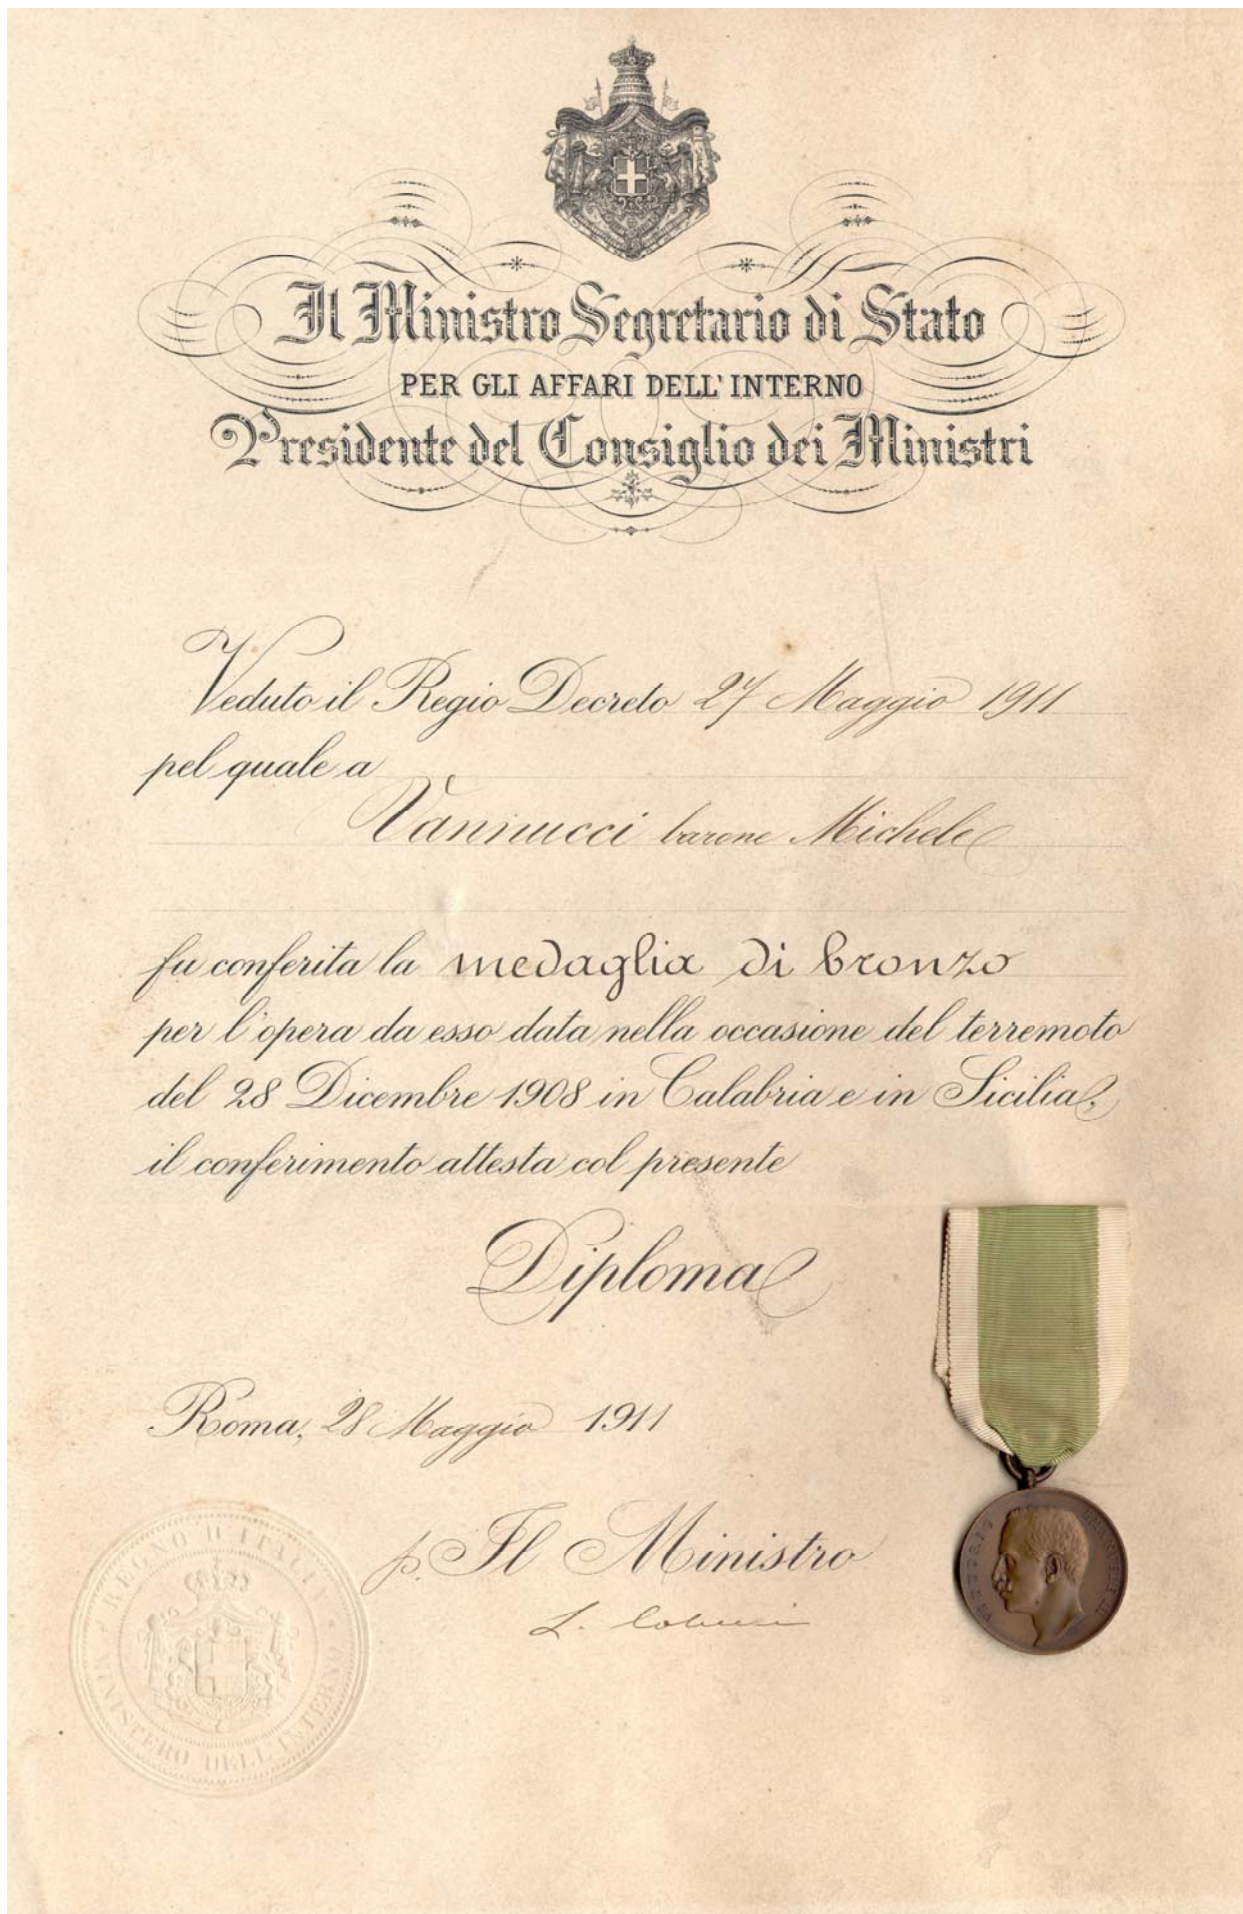 Il Ministro Segretario di Stato
PER GLI AFFARI DELL'INTERNO
Presidente del Consiglio dei Ministri
Veduto il Regio Decreto 27 Maggio 1911
pel quale a
Vannucci barone Michele
fu conferita la medaglia di bronzo
per l'opera da esso data nella occasione del terremoto
del 28 Dicembre 1908 in Calabria e in Sicilia,
il conferimento attesta col presente
Diploma
Roma, 28 Maggio 1911
p. Il Ministro
L.
REGNO D'ITALIA
MINISTERO DELL'INTERNO
VITTORIO EMANUELE III